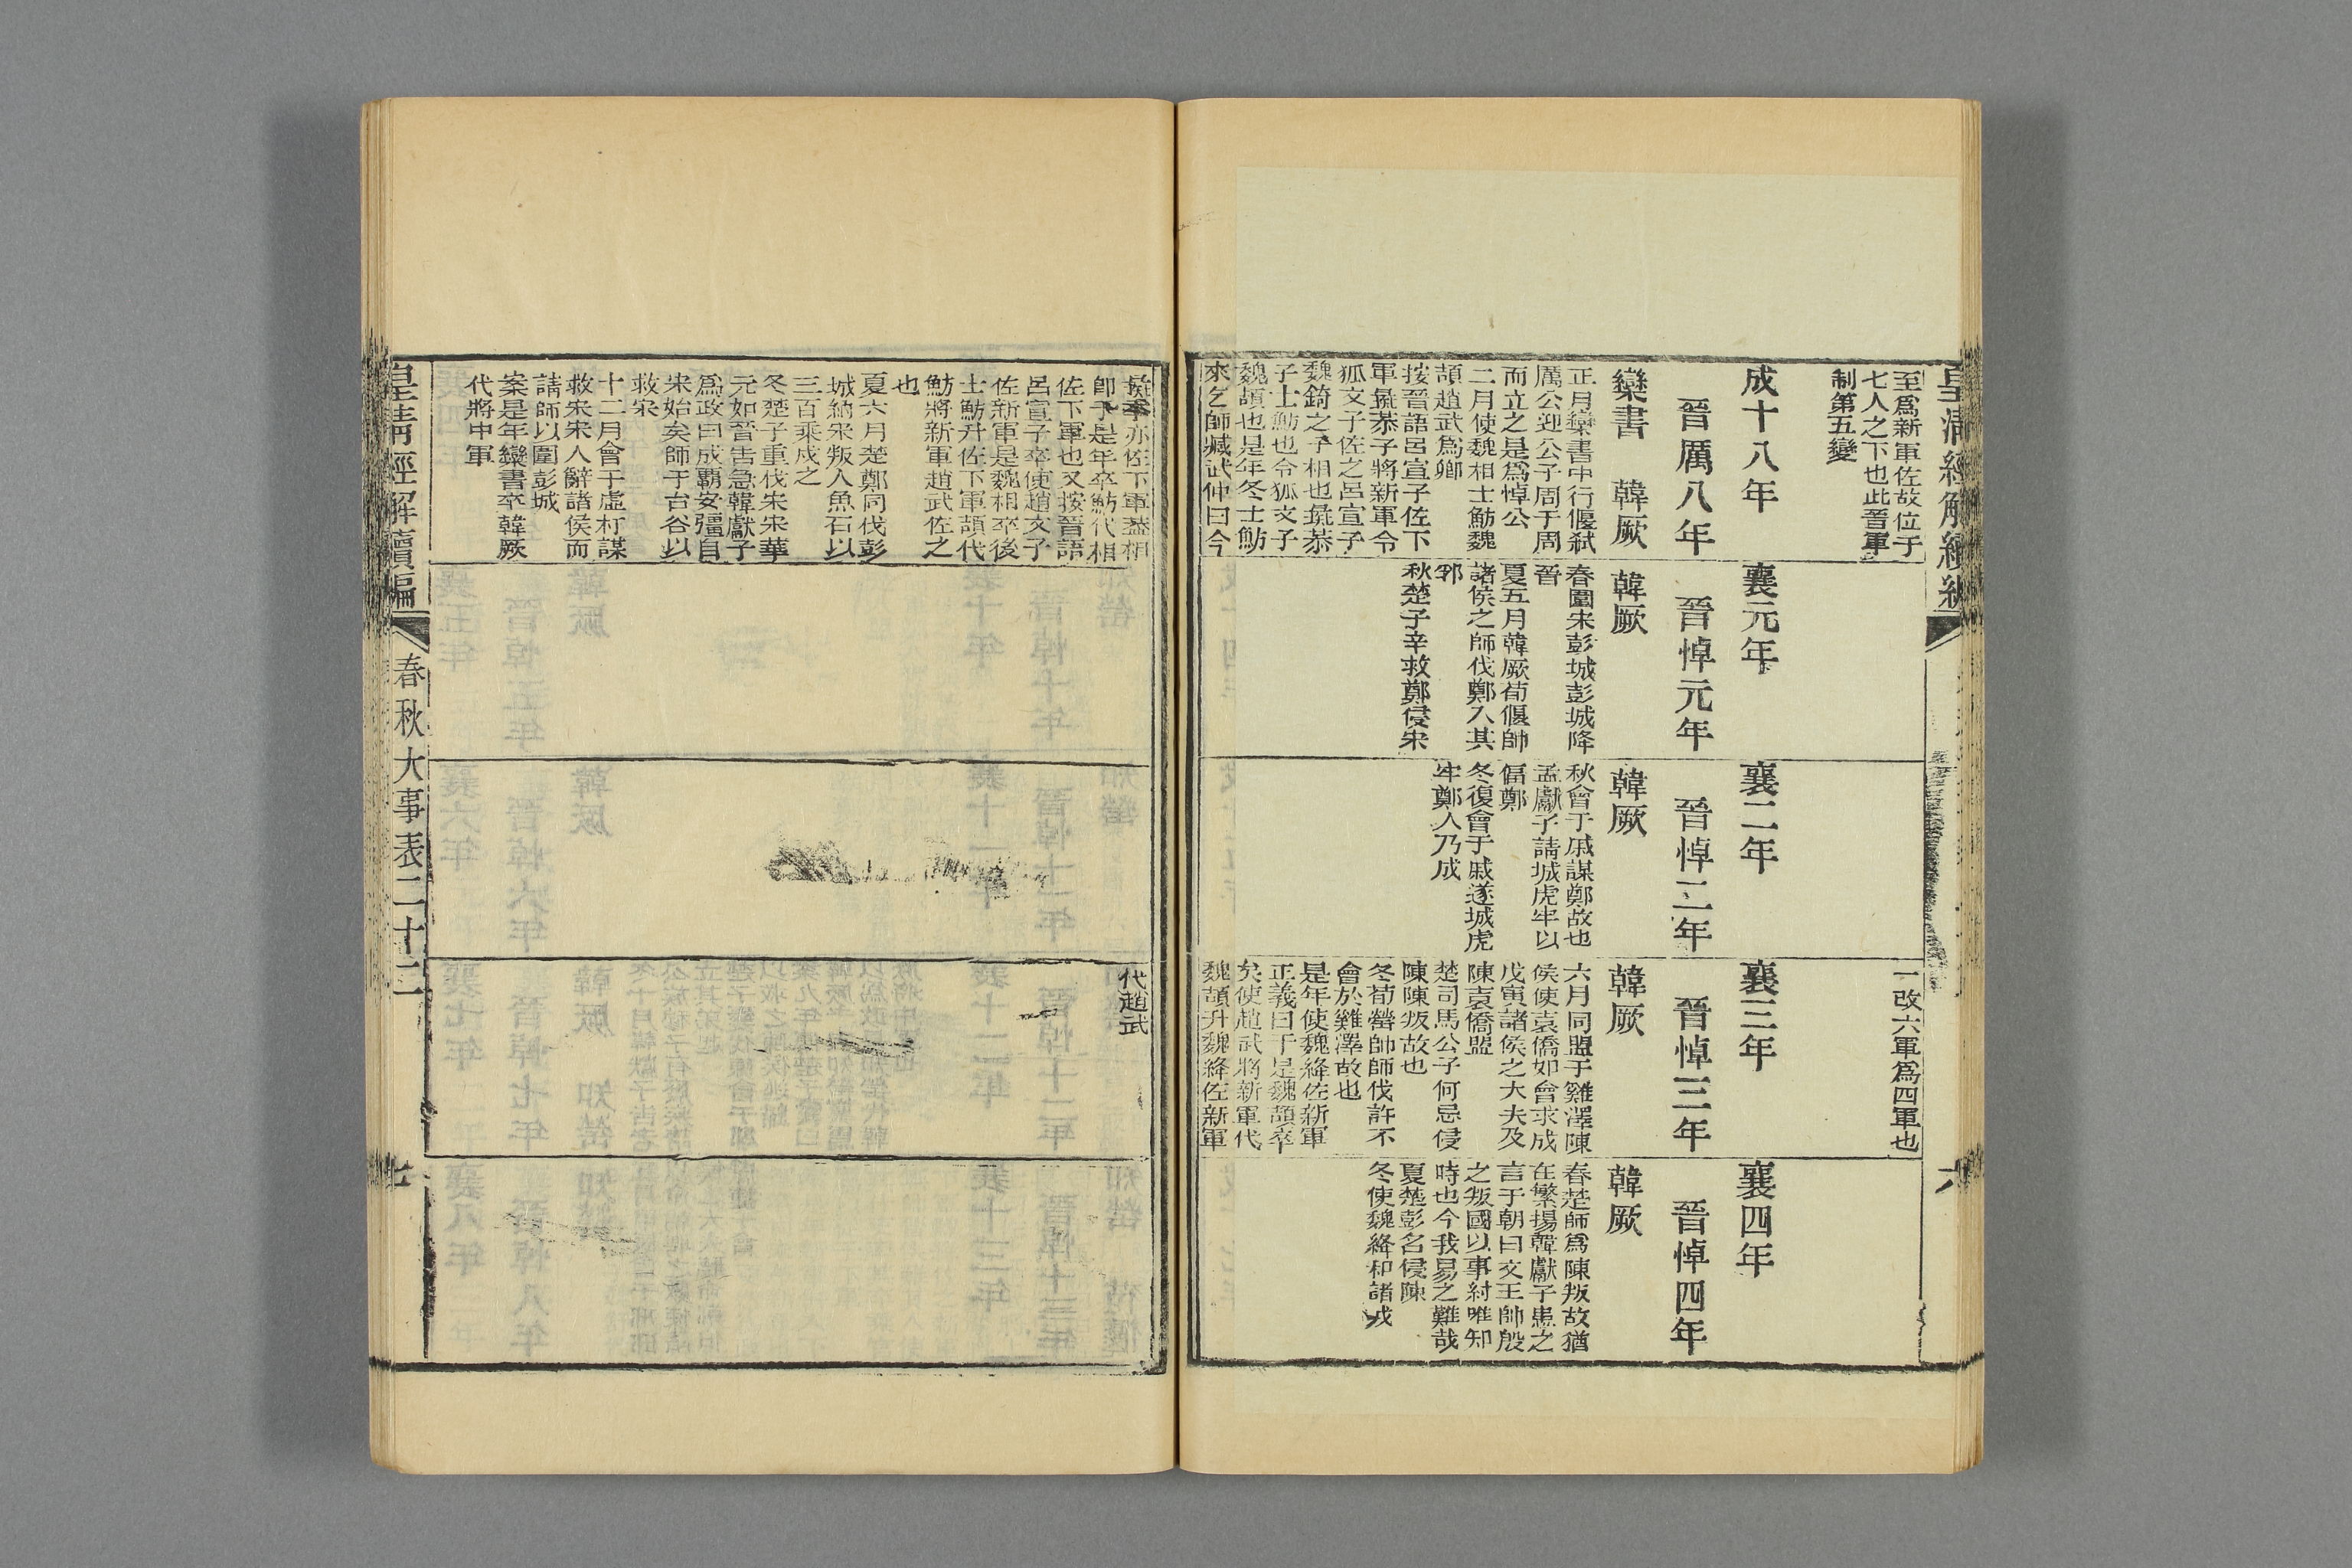 至爲新軍佐故位于
七人之下也此晉軍
制第五變
成十八年
晉厲八年
欒書　韓厥
正月欒書中行偃弒
厲公迎公子周于周
而立之是爲悼公
二月使魏相士魴魏
頡趙武爲卿
按晉語呂宣子佐下
軍彘恭子將新軍令
狐文子佐之呂宣子
魏錡之子相也彘恭
子士魴也令狐文子
魏頡也是年冬士魴
來乞師臧武仲曰今
襄元年
晉悼元年
韓厥
春圍宋彭城彭城降
晉
夏五月韓厥荀偃帥
諸侯之師伐鄭入其
郛
秋楚子辛救鄭侵宋
襄二年
晉悼二年
韓厥
秋會于戚謀鄭故也
孟獻子請城虎牢以
偪鄭
冬復會于戚遂城虎
牢鄭人乃成
一改六軍爲四軍也
襄三年
晉悼三年
韓厥
六月同盟于雞澤陳
侯使袁僑如會求成
戊寅諸侯之大夫及
陳袁僑盟
楚司馬公子何忌侵
陳陳叛故也
冬荀罃帥師伐許不
會於雞澤故也
是年使魏絳佐新軍
正義曰于是魏頡卒
矣使趙武將新軍代
魏頡升魏絳佐新軍
襄四年
晉悼四年
韓厥
春楚師爲陳叛故猶
在繁揚韓獻子患之
言于朝曰文王帥殷
之叛國以事紂唯知
時也今我易之難哉
夏楚彭名侵陳
冬使魏絳和諸戎
皇清經解續編
六
彘季亦佐下軍蓋相
卽于是年卒魴代相
佐下軍也又按晉語
呂宣子卒使趙文子
佐新軍是魏相卒後
士魴升佐下軍頡代
魴將新軍趙武佐之
也
夏六月楚鄭同伐彭
城納宋叛人魚石以
三百乘戍之
冬楚子重伐宋宋華
元如晉告急韓獻子
爲政曰成霸安彊自
宋始矣師于台谷以
救宋
十二月會于虛朾謀
救宋宋人辭諸侯而
請師以圍彭城
案是年欒書卒韓厥
代將中軍
代趙武
皇清經解續編
春秋大事表二十二
七